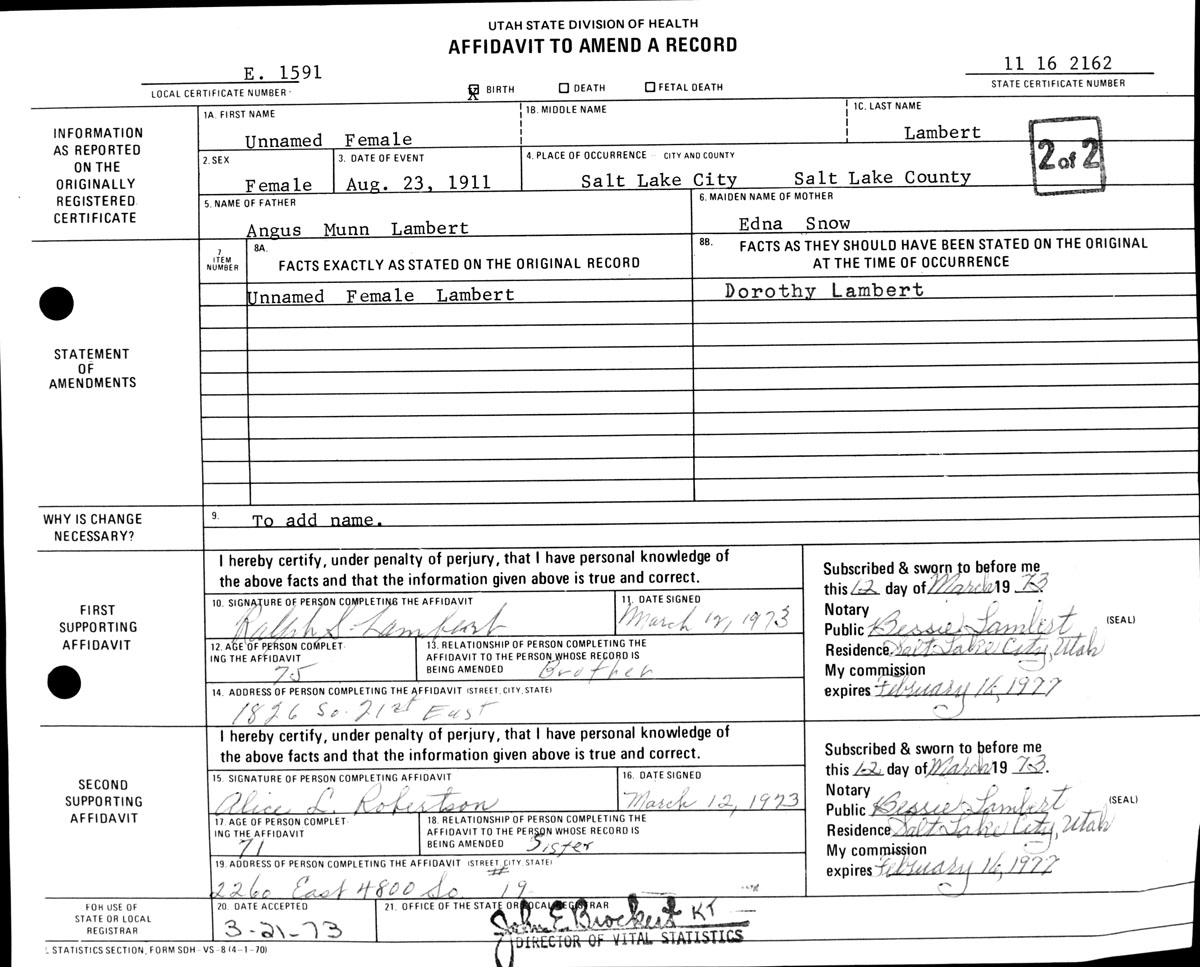 UTAH STATE DIVISION OF HEALTH
AFFIDAVIT TO AMEND A RECORD
E. 1591
LOCAL CERTIFICATE NUMBER
X BIRTH DEATH FETAL DEATH
11 16 2162
STATE CERTIFICATE NUMBER
INFORMATION AS REPORTED ON THE ORIGINALLY REGISTERED CERTIFICATE
1A. FIRST NAME
Unnamed Female
1B. MIDDLE NAME
1C. LAST NAME
Lambert
2 of 2
2. SEX
Female
3. DATE OF EVENT
Aug. 23, 1911
4. PLACE OF OCCURRENCE - CITY AND COUNTY
Salt Lake City Salt Lake County
5. NAME OF FATHER
Angus Munn Lambert
6. MAIDEN NAME OF MOTHER
Edna Snow
STATEMENT OF AMENDMENTS
7 ITEM NUMBER
8A. FACTS EXACTLY AS STATED ON THE ORIGINAL RECORD
8B. FACTS AS THEY SHOULD HAVE BEEN STATED ON THE ORIGINAL
AT THE TIME OF OCCURRENCE
Unnamed Female Lambert
Dorothy Lambert
WHY IS CHANGE NECESSARY?
9. To add name.
FIRST SUPPORTING AFFIDAVIT
I hereby certify, under penalty of perjury, that I have personal knowledge of
the above facts and that the information given above is true and correct.
10. SIGNATURE OF PERSON COMPLETING THE AFFIDAVIT
Ralph S. Lambert
11. DATE SIGNED
March 12, 1973
12. AGE OF PERSON COMPLETING THE AFFIDAVIT
75
13. RELATIONSHIP OF PERSON COMPLETING THE
AFFIDAVIT TO THE PERSON WHOSE RECORD IS
BEING AMENDED Brother
14. ADDRESS OF PERSON COMPLETING THE AFFIDAVIT (STREET, CITY, STATE)
1826 So. 21st East
Subscribed & sworn to before me
this 12 day of March 19 73.
Notary
Public Bessie Lambert (SEAL)
Residence Salt Lake City, Utah
My commission
expires February 16, 1977
SECOND SUPPORTING AFFIDAVIT
I hereby certify, under penalty of perjury, that I have personal knowledge of
the above facts and that the information given above is true and correct.
15. SIGNATURE OF PERSON COMPLETING AFFIDAVIT
Alice L. Robertson
16. DATE SIGNED
March 12, 1973
17. AGE OF PERSON COMPLETING THE AFFIDAVIT
71
18. RELATIONSHIP OF PERSON COMPLETING THE
AFFIDAVIT TO THE PERSON WHOSE RECORD IS
BEING AMENDED Sister
19. ADDRESS OF PERSON COMPLETING THE AFFIDAVIT (STREET, CITY, STATE)
2260 East 4800 So. # 19
Subscribed & sworn to before me
this 12 day of March 19 73.
Notary
Public Bessie Lambert (SEAL)
Residence Salt Lake City, Utah
My commission
expires February 16, 1977
FOR USE OF STATE OR LOCAL REGISTRAR
20. DATE ACCEPTED
3-21-73
21. OFFICE OF THE STATE OR LOCAL REGISTRAR
John E. Brockert KT
DIRECTOR OF VITAL STATISTICS
STATISTICS SECTION, FORM SDH-VS-8 (4-1-70)